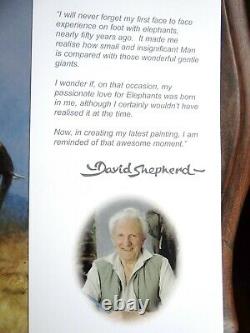 "I will never forget my first face to face
experience on foot with elephants,
nearly fifty years ago.  It made me
realise how small and insignificant Man
is compared with those wonderful gentle
giants.
I wonder if, on that occasion, my
passionate love for Elephants was born
in me, although I certainly wouldn't have
realised it at the time.
Now, in creating my latest painting, I am
reminded of that awesome moment."
David Shepherd